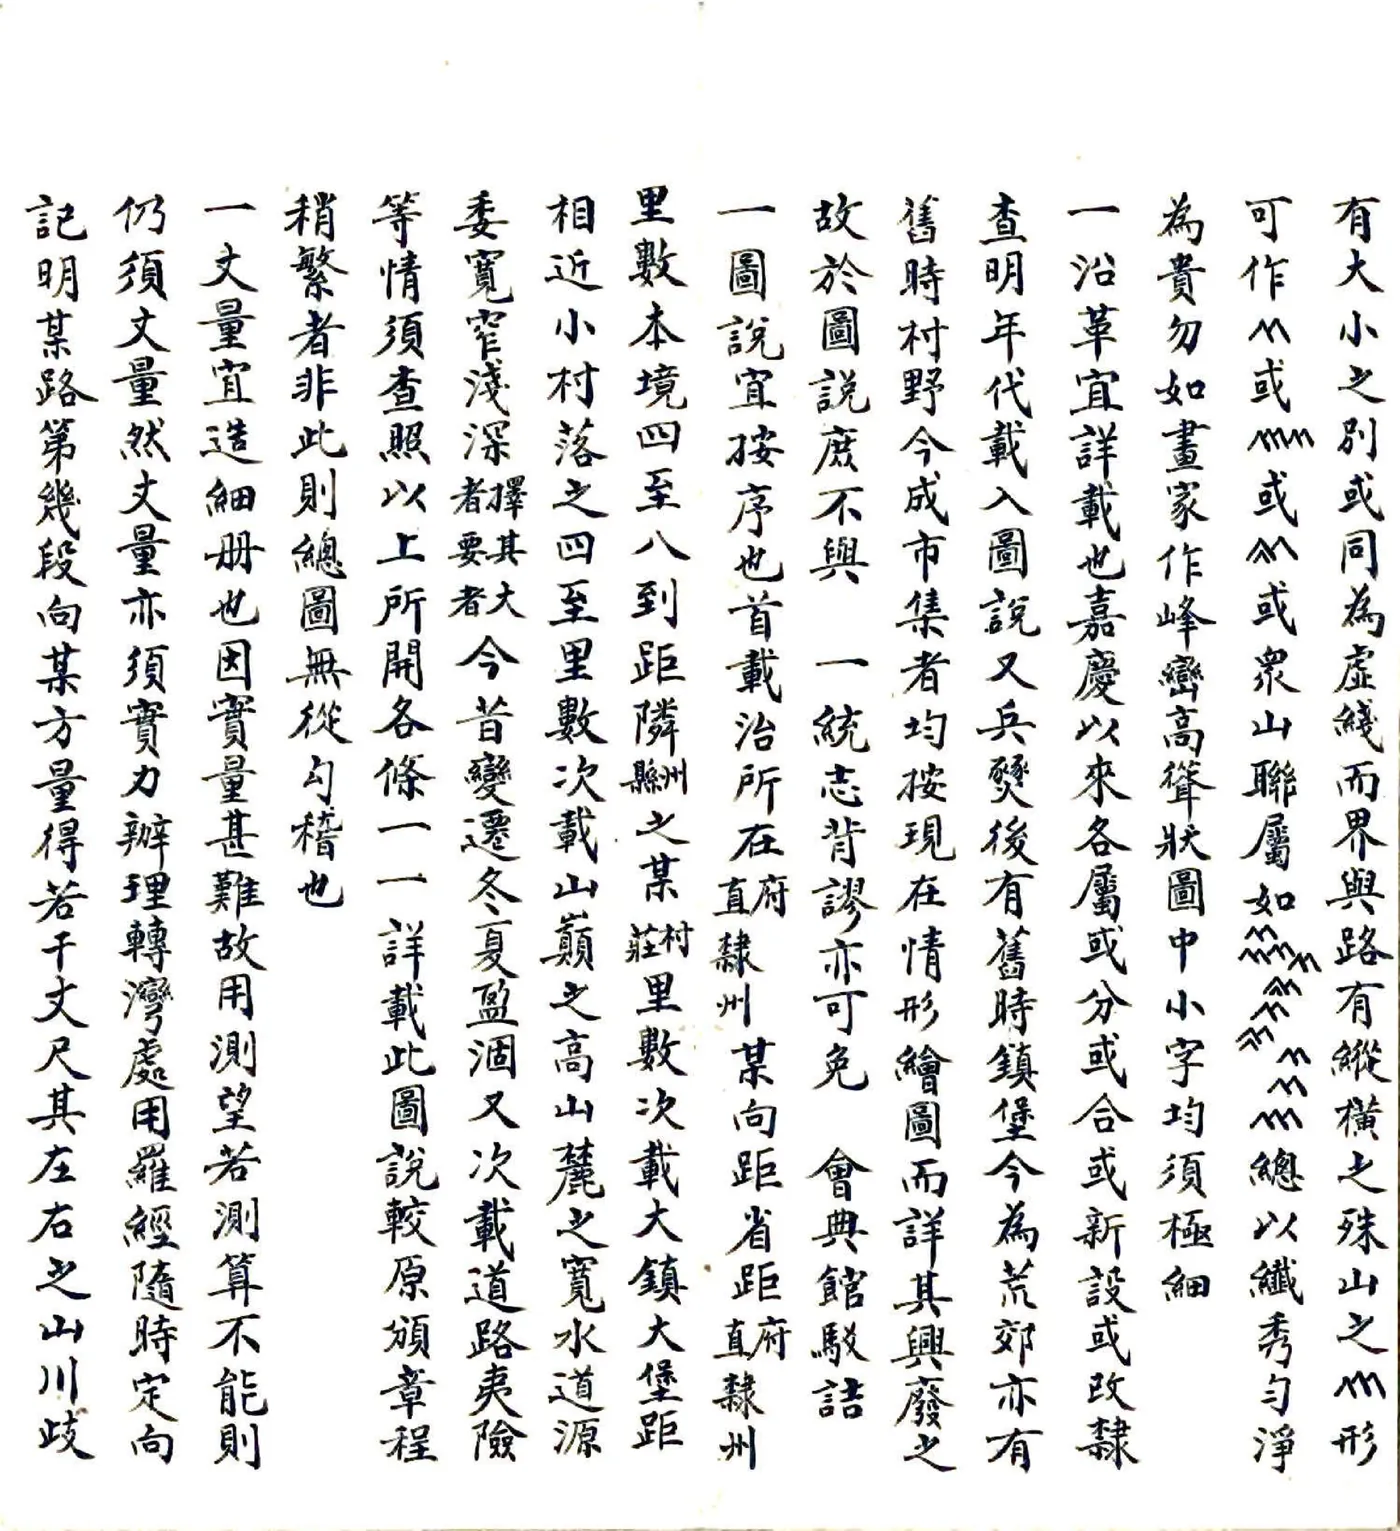 有大小之別或同為虛綫而界與路有縱橫之殊山之形
可作或或或眾山聯屬如總以纖秀勻淨
為貴勿如畫家作峰巒高聳狀圖中小字均須極細
一沿革宜詳載也嘉慶以來各屬或分或合或新設或改隸
查明年代載入圖說又兵燹後有舊時鎮堡今為荒郊亦有
舊時村野今成市集者均按現在情形繪圖而詳其興廢之
故於圖說庶不與 一統志背謬亦可免 會典館駁詰
一圖說宜按序也首載治所在府直隸州某向距省距府直隸州
里數本境四至八到距隣州縣之某村莊里數次載大鎮大堡距
相近小村落之四至里數次載山巔之高山麓之寬水道源
委寬窄淺深擇其大者要者今昔變遷冬夏盈涸又次載道路夷險
等情須查照以上所開各條一一詳載此圖說較原頒章程
稍繁者非此則總圖無從勾稽也
一丈量宜造細册也因實量甚難故用測望若測算不能則
仍須丈量然丈量亦須實力辦理轉灣處用羅經隨時定向
記明某路第幾段向某方量得若干丈尺其左右之山川歧